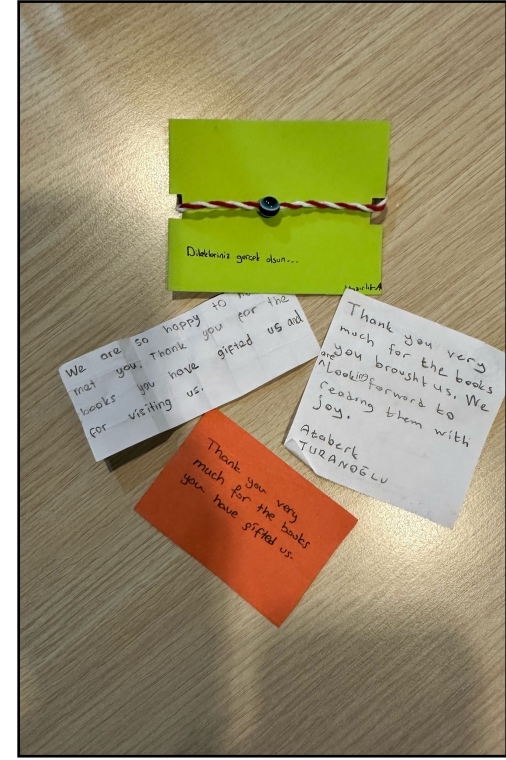 Dilekleriniz gerçek olsun...
We are so happy to
met you. Thank you for the
books you have gifted us and
for visiting us.
Thank you very
much for the books
you brought us. We
are Looking forward to
reading them with
joy.
Ataberk
TURANOĞLU
Thank you very
much for the books
you have gifted us.